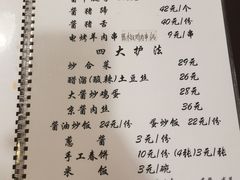 酱猪蹄 42元/个
酱猪舌 40元/份
电烤羊肉串 9元/串
四大护法
炒合菜 29元
醋溜(酸辣)土豆丝 26元
大酱炒鸡蛋 28元
京酱肉丝 36元
酱油炒饭 24元/份 蛋炒饭 22元/份
葱酱 3元/份
手工春饼 10元/份 (4张)3元/张
米饭 3元/碗